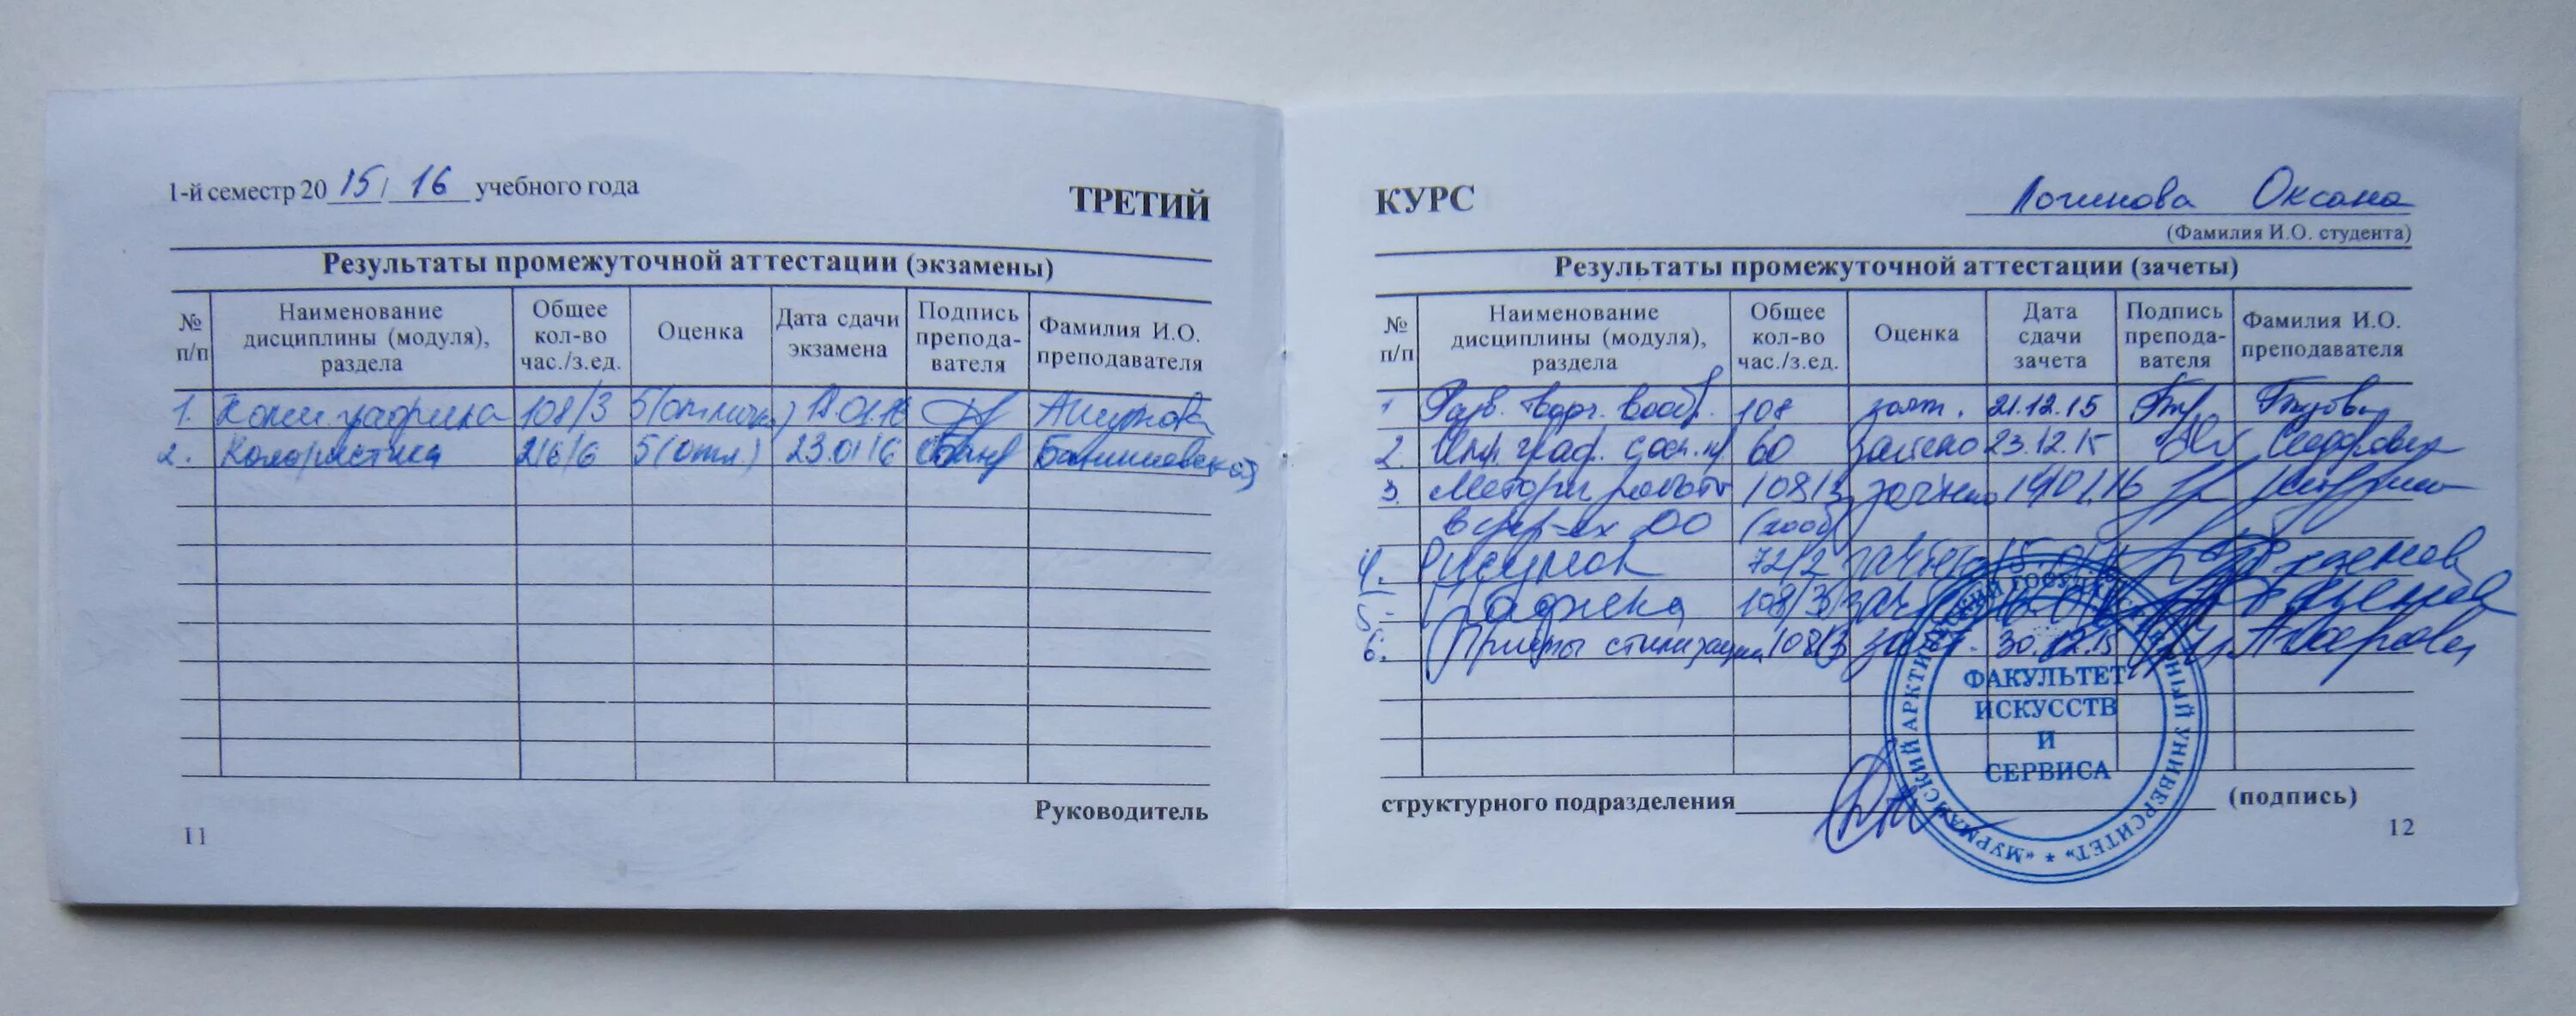 1-й семестр 20 15 / 16 учебного года
ТРЕТИЙ
Результаты промежуточной аттестации (экзамены)
№ п/п
Наименование
дисциплины (модуля),
раздела
Общее
кол-во
час./з.ед.
Оценка
Дата сдачи
экзамена
Подпись
препода-
вателя
Фамилия И.О.
преподавателя
1. Комп. графика 108/3 5(отлично)
2. Колористика 216/6 5(отл.) 23.01.16
Руководитель
11
КУРС
Логинова Оксана
(Фамилия И.О. студента)
Результаты промежуточной аттестации (зачеты)
№ п/п
Наименование
дисциплины (модуля),
раздела
Общее
кол-во
час./з.ед.
Оценка
Дата
сдачи
зачета
Подпись
препода-
вателя
Фамилия И.О.
преподавателя
1 Разв. творч. вообр. 108 зачт. 21.12.15
2. 60 зачтено 23.12.15
3. 108/3 зачтено 19.01.16
4. Рисунок 72/2 зачтено
5. Графика 108/3 зачт.
6. Приемы стилизации 108/3 зачт. 30.12.15
ФАКУЛЬТЕТ
ИСКУССТВ
И
СЕРВИСА
«МУРМАНСКИЙ АРКТИЧЕСКИЙ ГОСУДАРСТВЕННЫЙ УНИВЕРСИТЕТ» *
структурного подразделения (подпись)
12